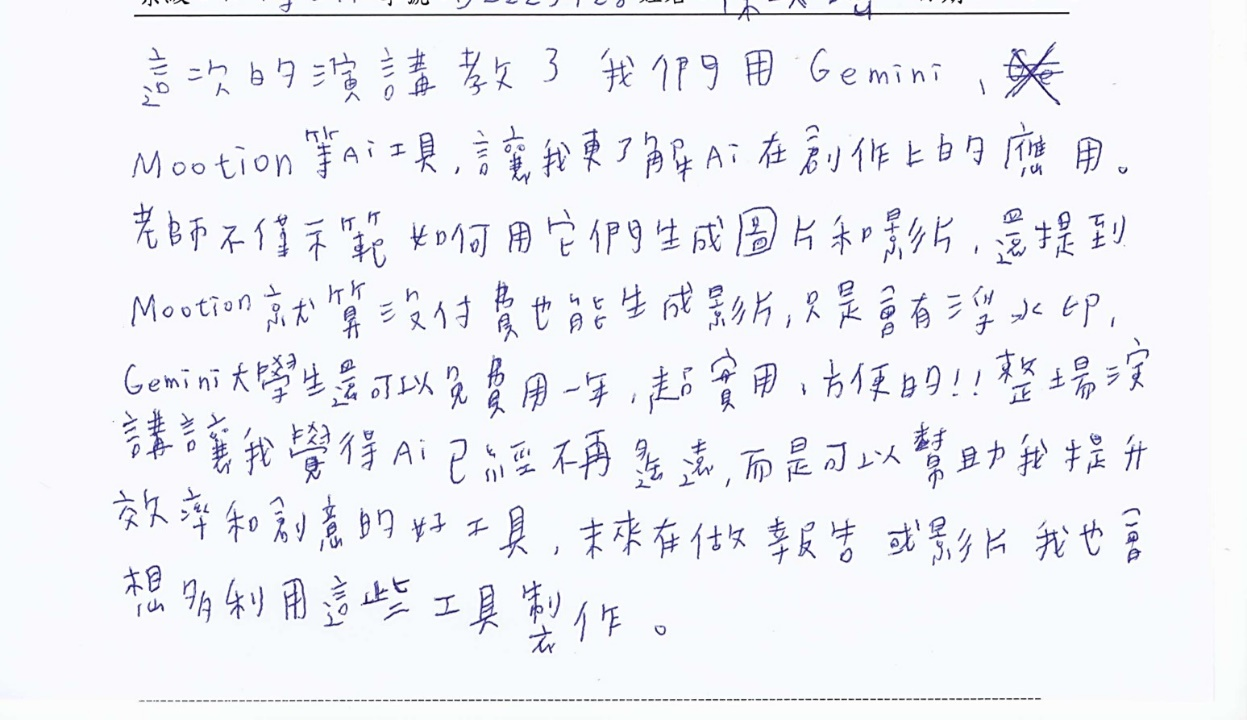 這次的演講教了我們用 Gemini、
Mootion等Ai工具,讓我更了解Ai在創作上的應用。
老師不僅示範如何用它們生成圖片和影片,還提到
Mootion就算沒付費也能生成影片,只是會有浮水印,
Gemini大學生還可以免費用一年,超實用、方便的!!整場演
講讓我覺得Ai已經不再遙遠,而是可以幫助我提升
效率和創意的好工具,未來在做報告或影片我也會
想多利用這些工具製作。